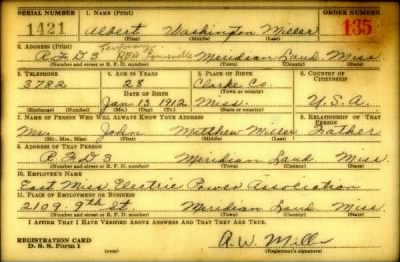 SERIAL NUMBER 1. NAME (Print) ORDER NUMBER
1421 Albert Washington Miller 135
(First) (Middle) (Last)
2. ADDRESS (Print)
R.F.D 3 Meridian Laud. Miss
(Number and street or R. F. D. number) (Town) (County) (State)
3. TELEPHONE 4. AGE IN YEARS 5. PLACE OF BIRTH 6. COUNTRY OF CITIZENSHIP
37RR. 28 Clarke Co.
DATE OF BIRTH (Town or county)
Jan 13 1912 Miss. U.S.A.
(Exchange) (Number) (Mo.) (Day) (Yr.) (State or country)
7. NAME OF PERSON WHO WILL ALWAYS KNOW YOUR ADDRESS 8. RELATIONSHIP OF THAT PERSON
John Matthew Miller Father
(Mr., Mrs., Miss) (First) (Middle) (Last)
9. ADDRESS OF THAT PERSON
R.F.D 3 Meridian Laud Miss.
(Number and street or R. F. D. number) (Town) (County) (State)
10. EMPLOYER'S NAME
East Miss Electric Power Association
11. PLACE OF EMPLOYMENT OR BUSINESS
2109. 9th St. Meridian Laud Miss
(Number and street or R. F. D. number) (Town) (County) (State)
I AFFIRM THAT I HAVE VERIFIED ABOVE ANSWERS AND THAT THEY ARE TRUE.
REGISTRATION CARD
D. S. S. Form 1 A. W. Miller
(Registrant's signature)